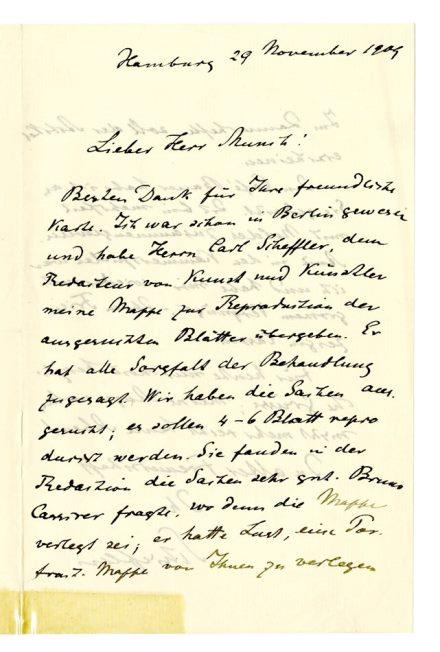 Hamburg 29 November 1905
Lieber Herr Munch!
Besten Dank für Ihre freundliche
Karte. Ich war schon in Berlin gewesen
und habe Herrn Carl Scheffler, dem
Redakteur von Kunst und Künstler
meine Mappe zur Reproduktion der
ausgesuchten Blätter übergeben. Er
hat alle Sorgfalt der Behandlung
zugesagt. Wir haben die Sachen aus-
gesucht; es sollen 4-6 Blatt repro
duziert werden. Sie fanden in der
Redaktion die Sachen sehr gut. Bruno
Cassirer fragte, wo denn die Mappe
verlegt sei; er hatte Lust, eine Por-
trait-Mappe von Ihnen zu verlegen